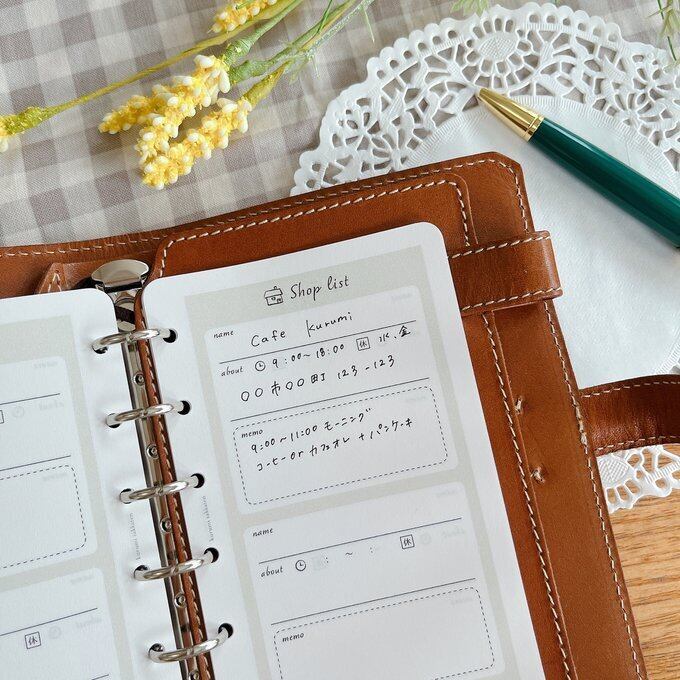 Shop list
name Cafe kurumi
about 9:00〜18:00 休 水、金
〇〇市〇〇町 123-123
memo
9:00〜11:00 モーニング
コーヒー or カフェオレ + パンケーキ
name
about : 〜 : 休
memo
休